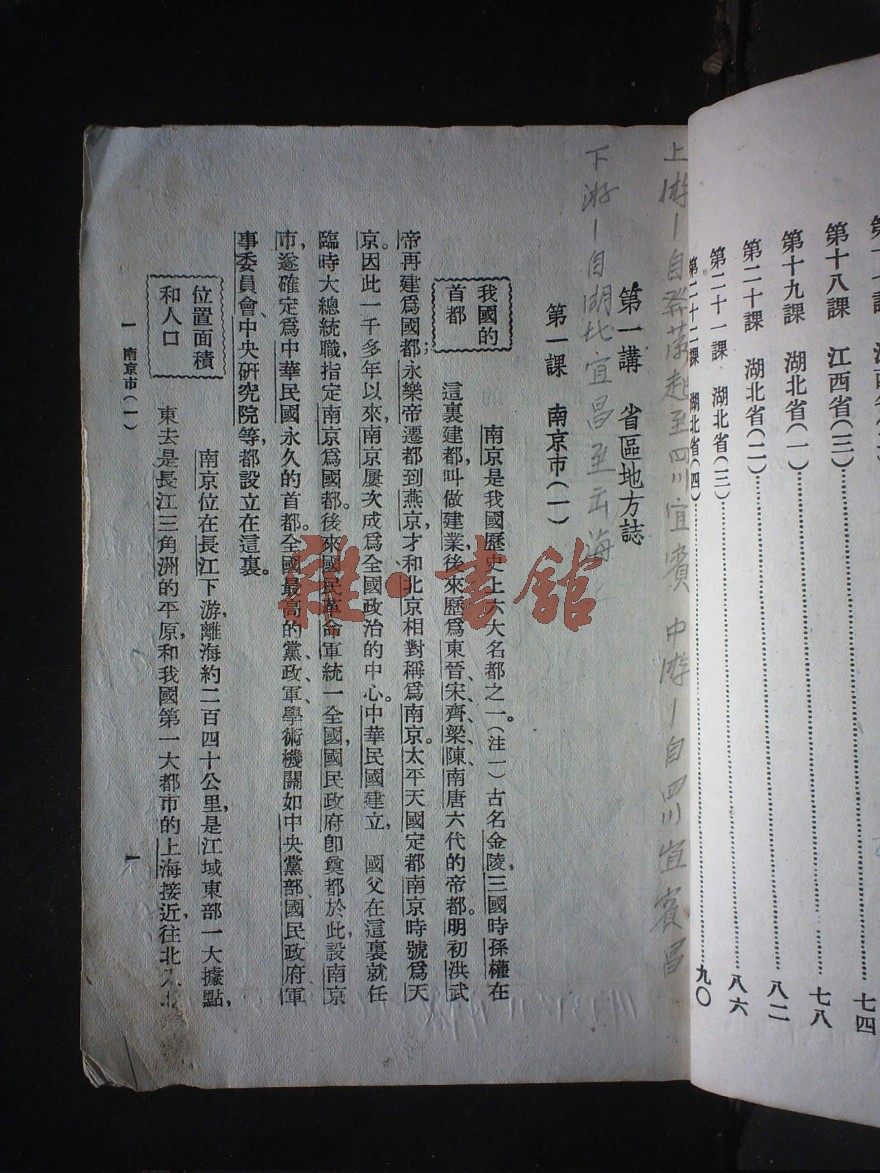 第十八課 江西省(三)……七四
第十九課 湖北省(一)……七八
第二十課 湖北省(二)……八二
第二十一課 湖北省(三)……八六
第二十二課 湖北省(四)……九〇
上游—自發源起至四川宜賓 中游—自四川宜賓
下游—自湖北宜昌至 海
第一講 省區地方誌
第一課 南京市(一)
我國的
首都
南京是我國歷史上六大名都之一。(注一)古名金陵,三國時孫權在
這裏建都,叫做建業,後來歷爲東晉、宋、齊、梁、陳、南唐六代的帝都。明初洪武
帝再建爲國都;永樂帝遷都到燕京,才和北京相對稱爲南京。太平天國定都南京時號爲天
京。因此一千多年以來,南京屢次成爲全國政治的中心。中華民國建立, 國父在這裏就任
臨時大總統職,指定南京爲國都。後來國民革命軍統一全國,國民政府卽奠都於此,設南京
市,遂確定爲中華民國永久的首都。全國最高的黨、政、軍、學術機關如中央黨部、國民政府、軍
事委員會、中央研究院等,都設立在這裏。
位置面積
和人口
南京位在長江下游,離海約二百四十公里,是江域東部一大據點,
東去是長江三角洲的平原,和我國第一大都市的上海接近,往北入
一 南京市(一)
一
雜·書館